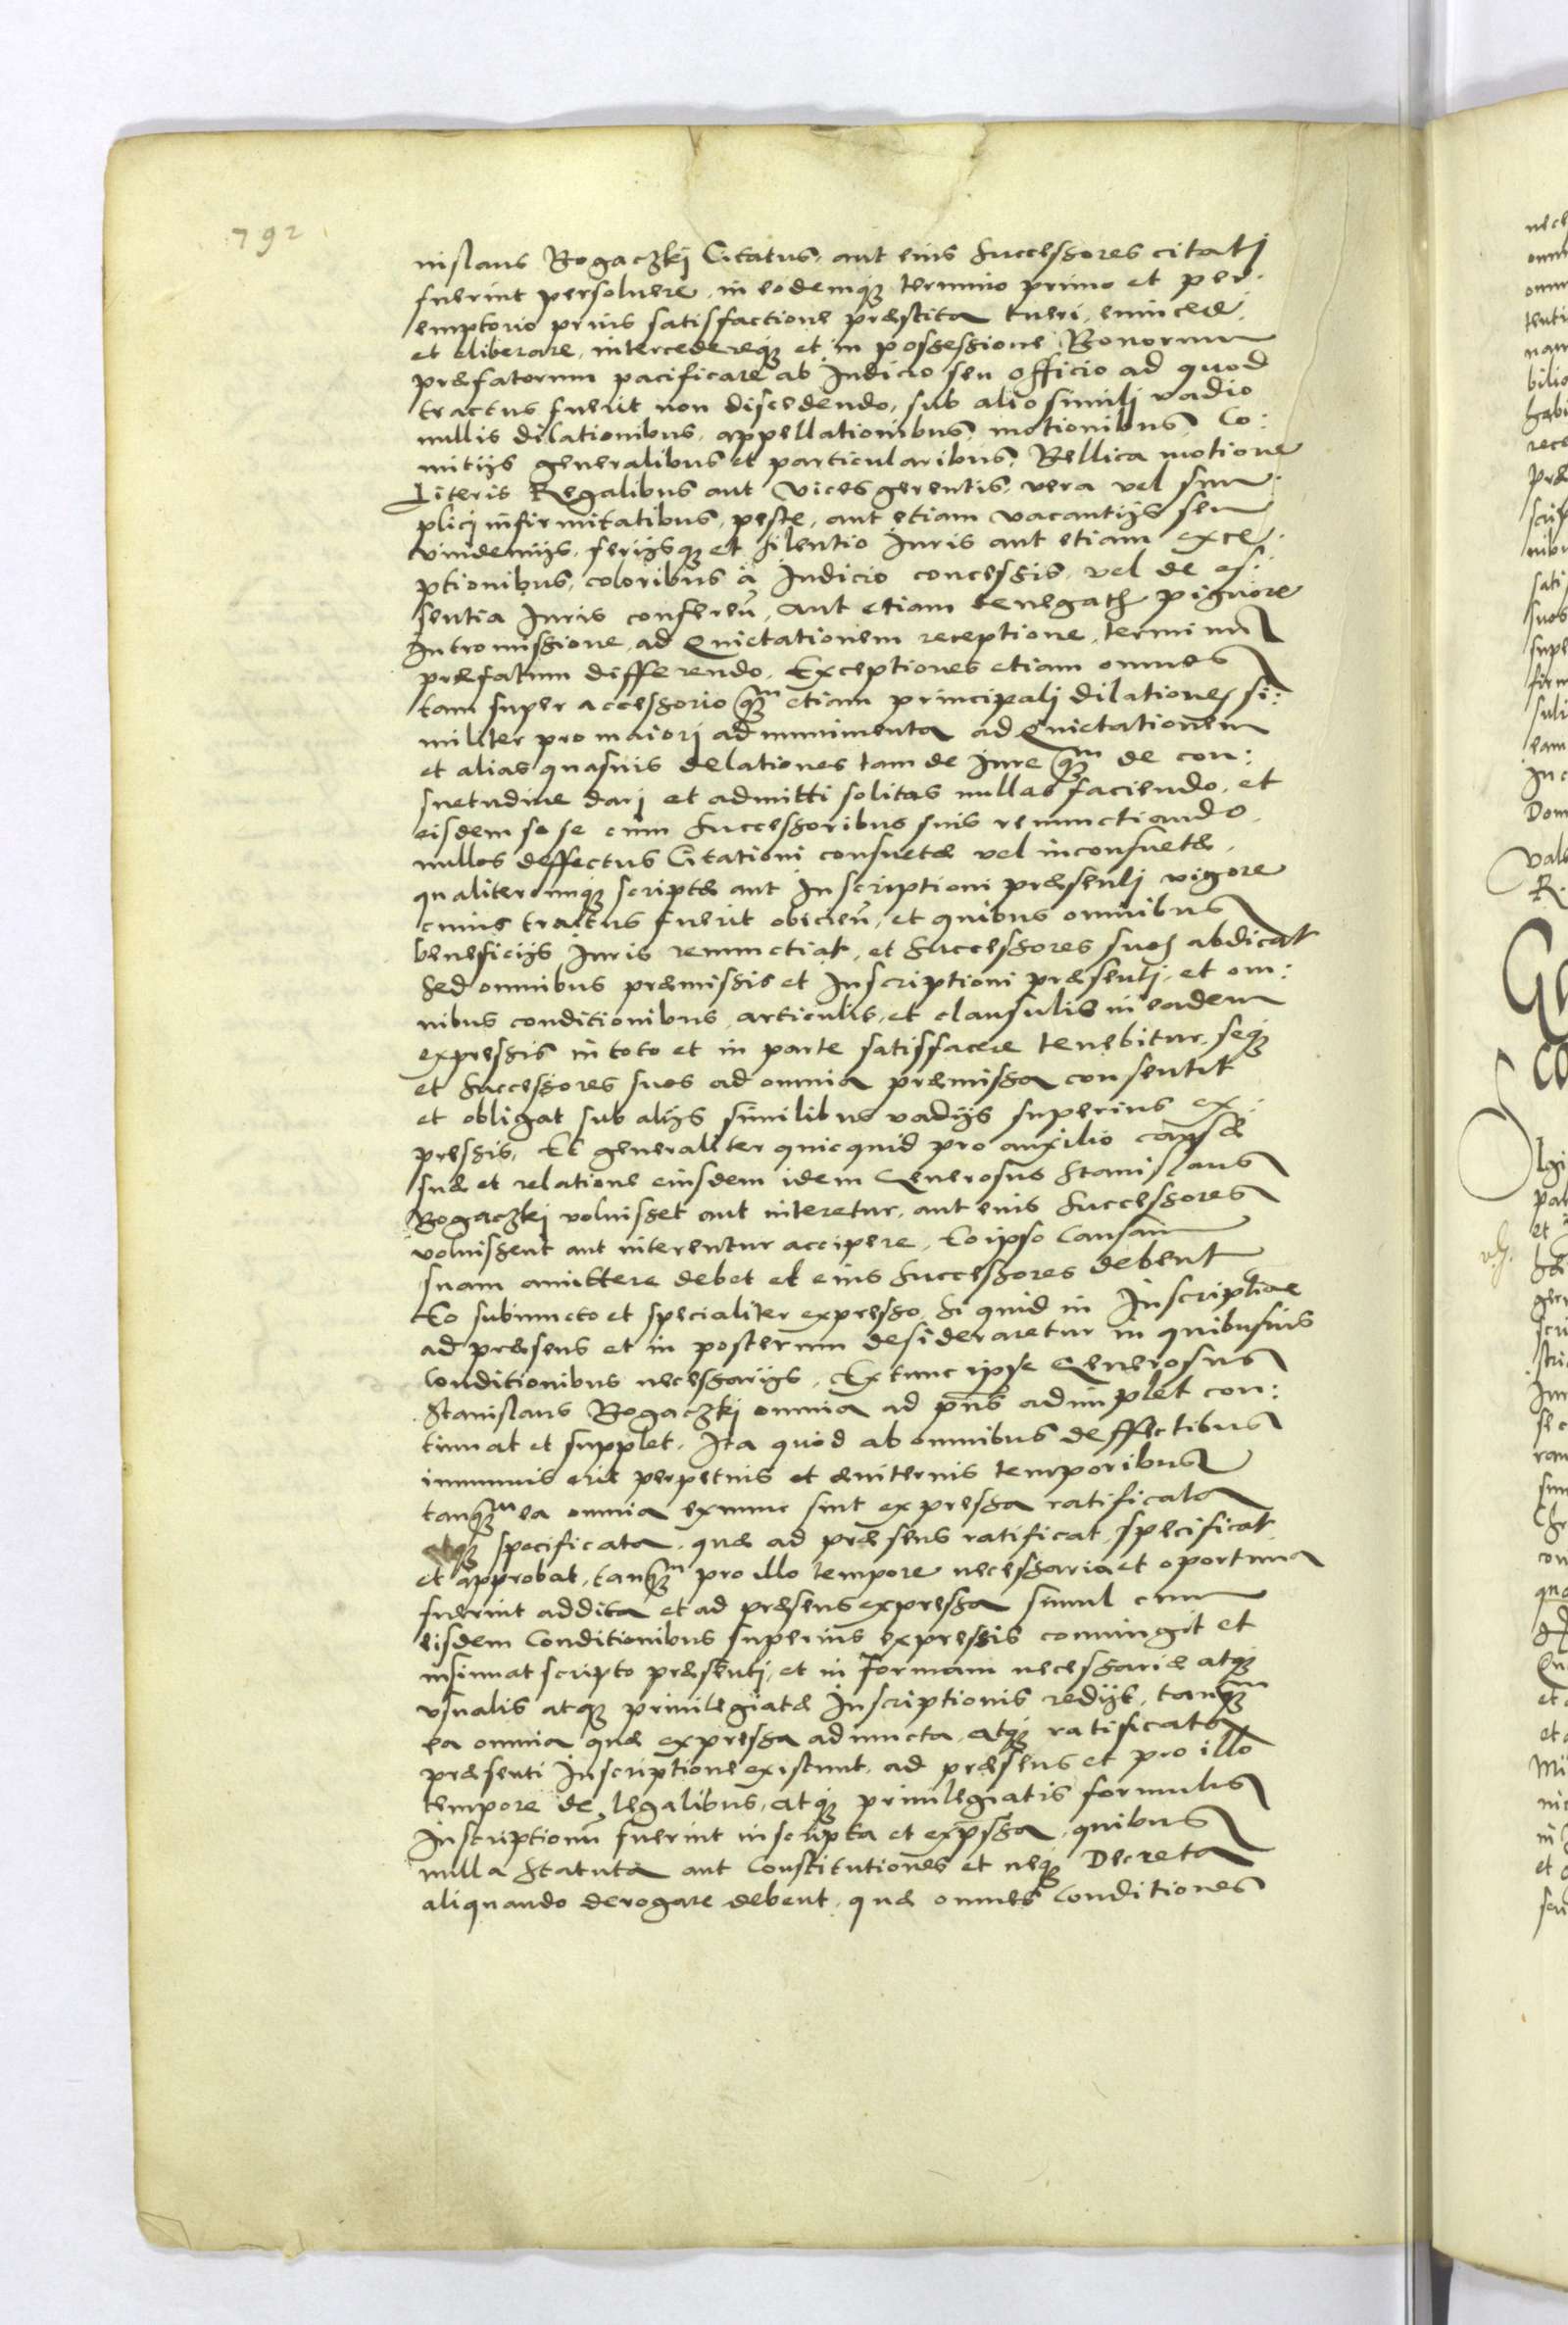 792
nislaus Rogaczkj Citatus, aut eius Successores citatj
fuerint persoluere, in eodemq; termino primo et per:
emptorio prius satisfactione præstita tueri, euincere
et eliberare, intercedereq; et in possessione Bonorum
præfatorum pacificare ab Judicio seu officio ad quod
tractus fuerit non discedendo, sub alio similj vadio
nullis dilationibus, appellationibus, motionibus, Co:
mitijs generalibus et particularibus, Bellica motione
Literis Regalibus aut vices gerentis, vera vel sim:
plicj infirmitatibus, peste, aut etiam vacantijs seu
vindemijs, ferijsq; et silentio Juris aut etiam exce:
ptionibus, coloribus à Judicio concessis, vel de es:
sentia Juris conferen̄, aut etiam pignore
Intromissione, ad Quietationem receptione, terminū
præfatum differendo. Exceptiones etiam omnes
tam super accessorio q̃m etiam principalj dilationes si:
militer pro maiorj ad munimenta ad Quietationem
et alias quasuis delationes tam de Jure q̃m de con:
suetudine darj et admitti solitas nullas faciendo, et
eisdem se se cum Successoribus suis renunctiando
nullos deffectus Citationi consuetæ vel inconsuetæ,
qualitercunq; scriptæ aut Inscriptioni præsentj vigore
cuius tractus fuerit obicien̄, et quibus omnibus
beneficijs Juris renunctiat, et Successores suos abdicat
Sed omnibus præmissis et Inscriptioni præsentj, et om:
nibus conditionibus, articulis, et clausulis in eadem
expressis in toto et in parte satisfacere tenebitur, seq;
et Successores suos ad omnia præmissa consentit
et obligat sub alijs similibus vadijs superius ex:
pressis, Et generaliter quicquid pro auxilio causæ
suæ et relatione eiusdem idem Generosus Stanislaus
Rogaczkj voluisset aut niteretur, aut eius Successores
voluissent aut niterentur accipere, Eo ipso Causam
suam amittere debet et eius Successores debent
Eo subiuncto et specialiter expresso, Si quid in Inscriptione
ad præsens et in posterum desideraretur in quibusuis
Conditionibus necessarijs, Extunc ipse Generosus
Stanislaus Rogaczkj omnia ad pn̄s adimplet con:
tinuat et supplet. Ita quod ab omnibus deffectibus
immunis erit perpetuis et æuiternis temporibus
tanq̃m ea omnia exnunc sint expressa ratificata
atq; specificata, quæ ad præsens ratificat, specificat
et approbat, tanq̃m pro illo tempore necessaria et oportuna
fuerint addita et ad præsens expressa simul cum
eisdem Conditionibus superius expressis coniungit et
insinuat scripto præsentj, et in formam necessariæ atq;
vsualis atq; priuilegiatæ Inscriptionis redijt, tanq̃m
ea omnia quæ expressa adiuncta, atq; ratificata
præsenti Inscriptione existunt, ad præsens et pro illo
tempore de legalibus, atq; priuilegiatis formulis
Inscriptionū fuerint inscripta et exp̄ssa, quibus
nulla Statuta aut Constitutiones et neq; Decreta
aliquando derogare debent, quæ omnes Conditiones